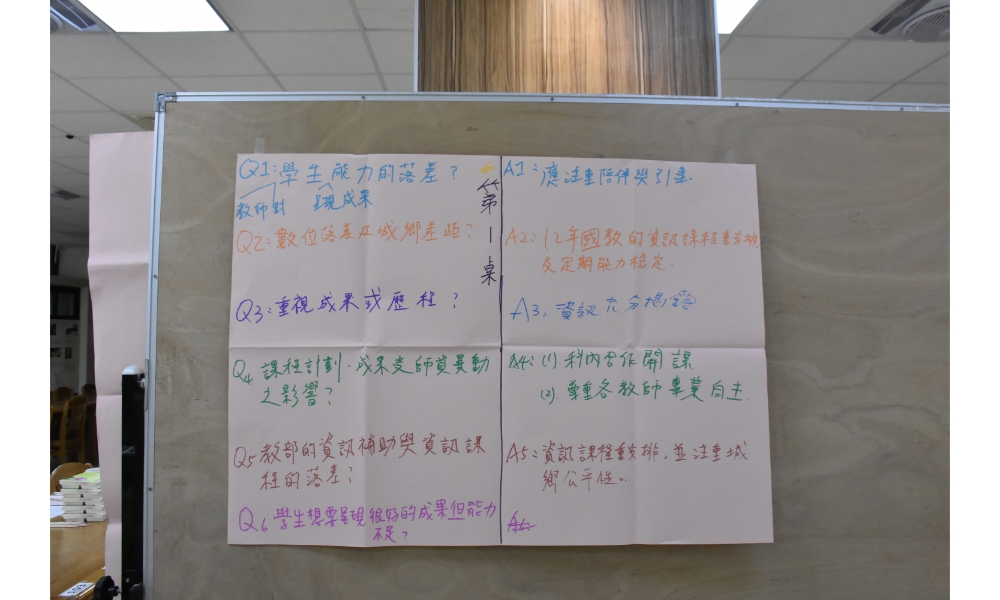 Q1:學生能力的落差?
教師對 呈現成果
Q2:數位落差及城鄉差距?
Q3:重視成果或歷程?
Q4 課程計劃.成果受師資異動
之影響?
Q5 教部的資訊補助與資訊課
程的落差?
Q6 學生想要呈現很好的成果但能力
不足?
第一桌
A1:應注重陪伴與引導
A2:12年國教的資訊課程重安排,
及定期能力檢定、
A3,資訊充分揭露
A4:(1)科內合作開課
(2).尊重各教師專業自主.
A5:資訊課程重安排,並注重城
鄉公平性..
A6